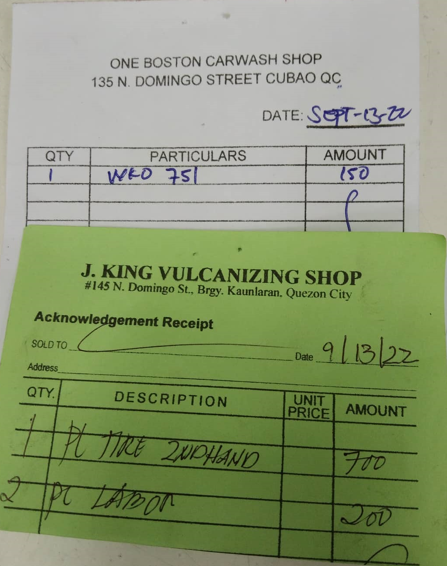 ONE BOSTON CARWASH SHOP
135 N. DOMINGO STREET CUBAO QC
DATE: SEPT-13-22
QTY PARTICULARS AMOUNT
1 WKO 751 150
J. KING VULCANIZING SHOP
#145 N. Domingo St., Brgy. Kaunlaran, Quezon City
Acknowledgement Receipt
SOLD TO
Date 9/13/22
Address
QTY. DESCRIPTION UNIT PRICE AMOUNT
1 PC TIRE 2NDHAND 700
2 PC LABOR 200